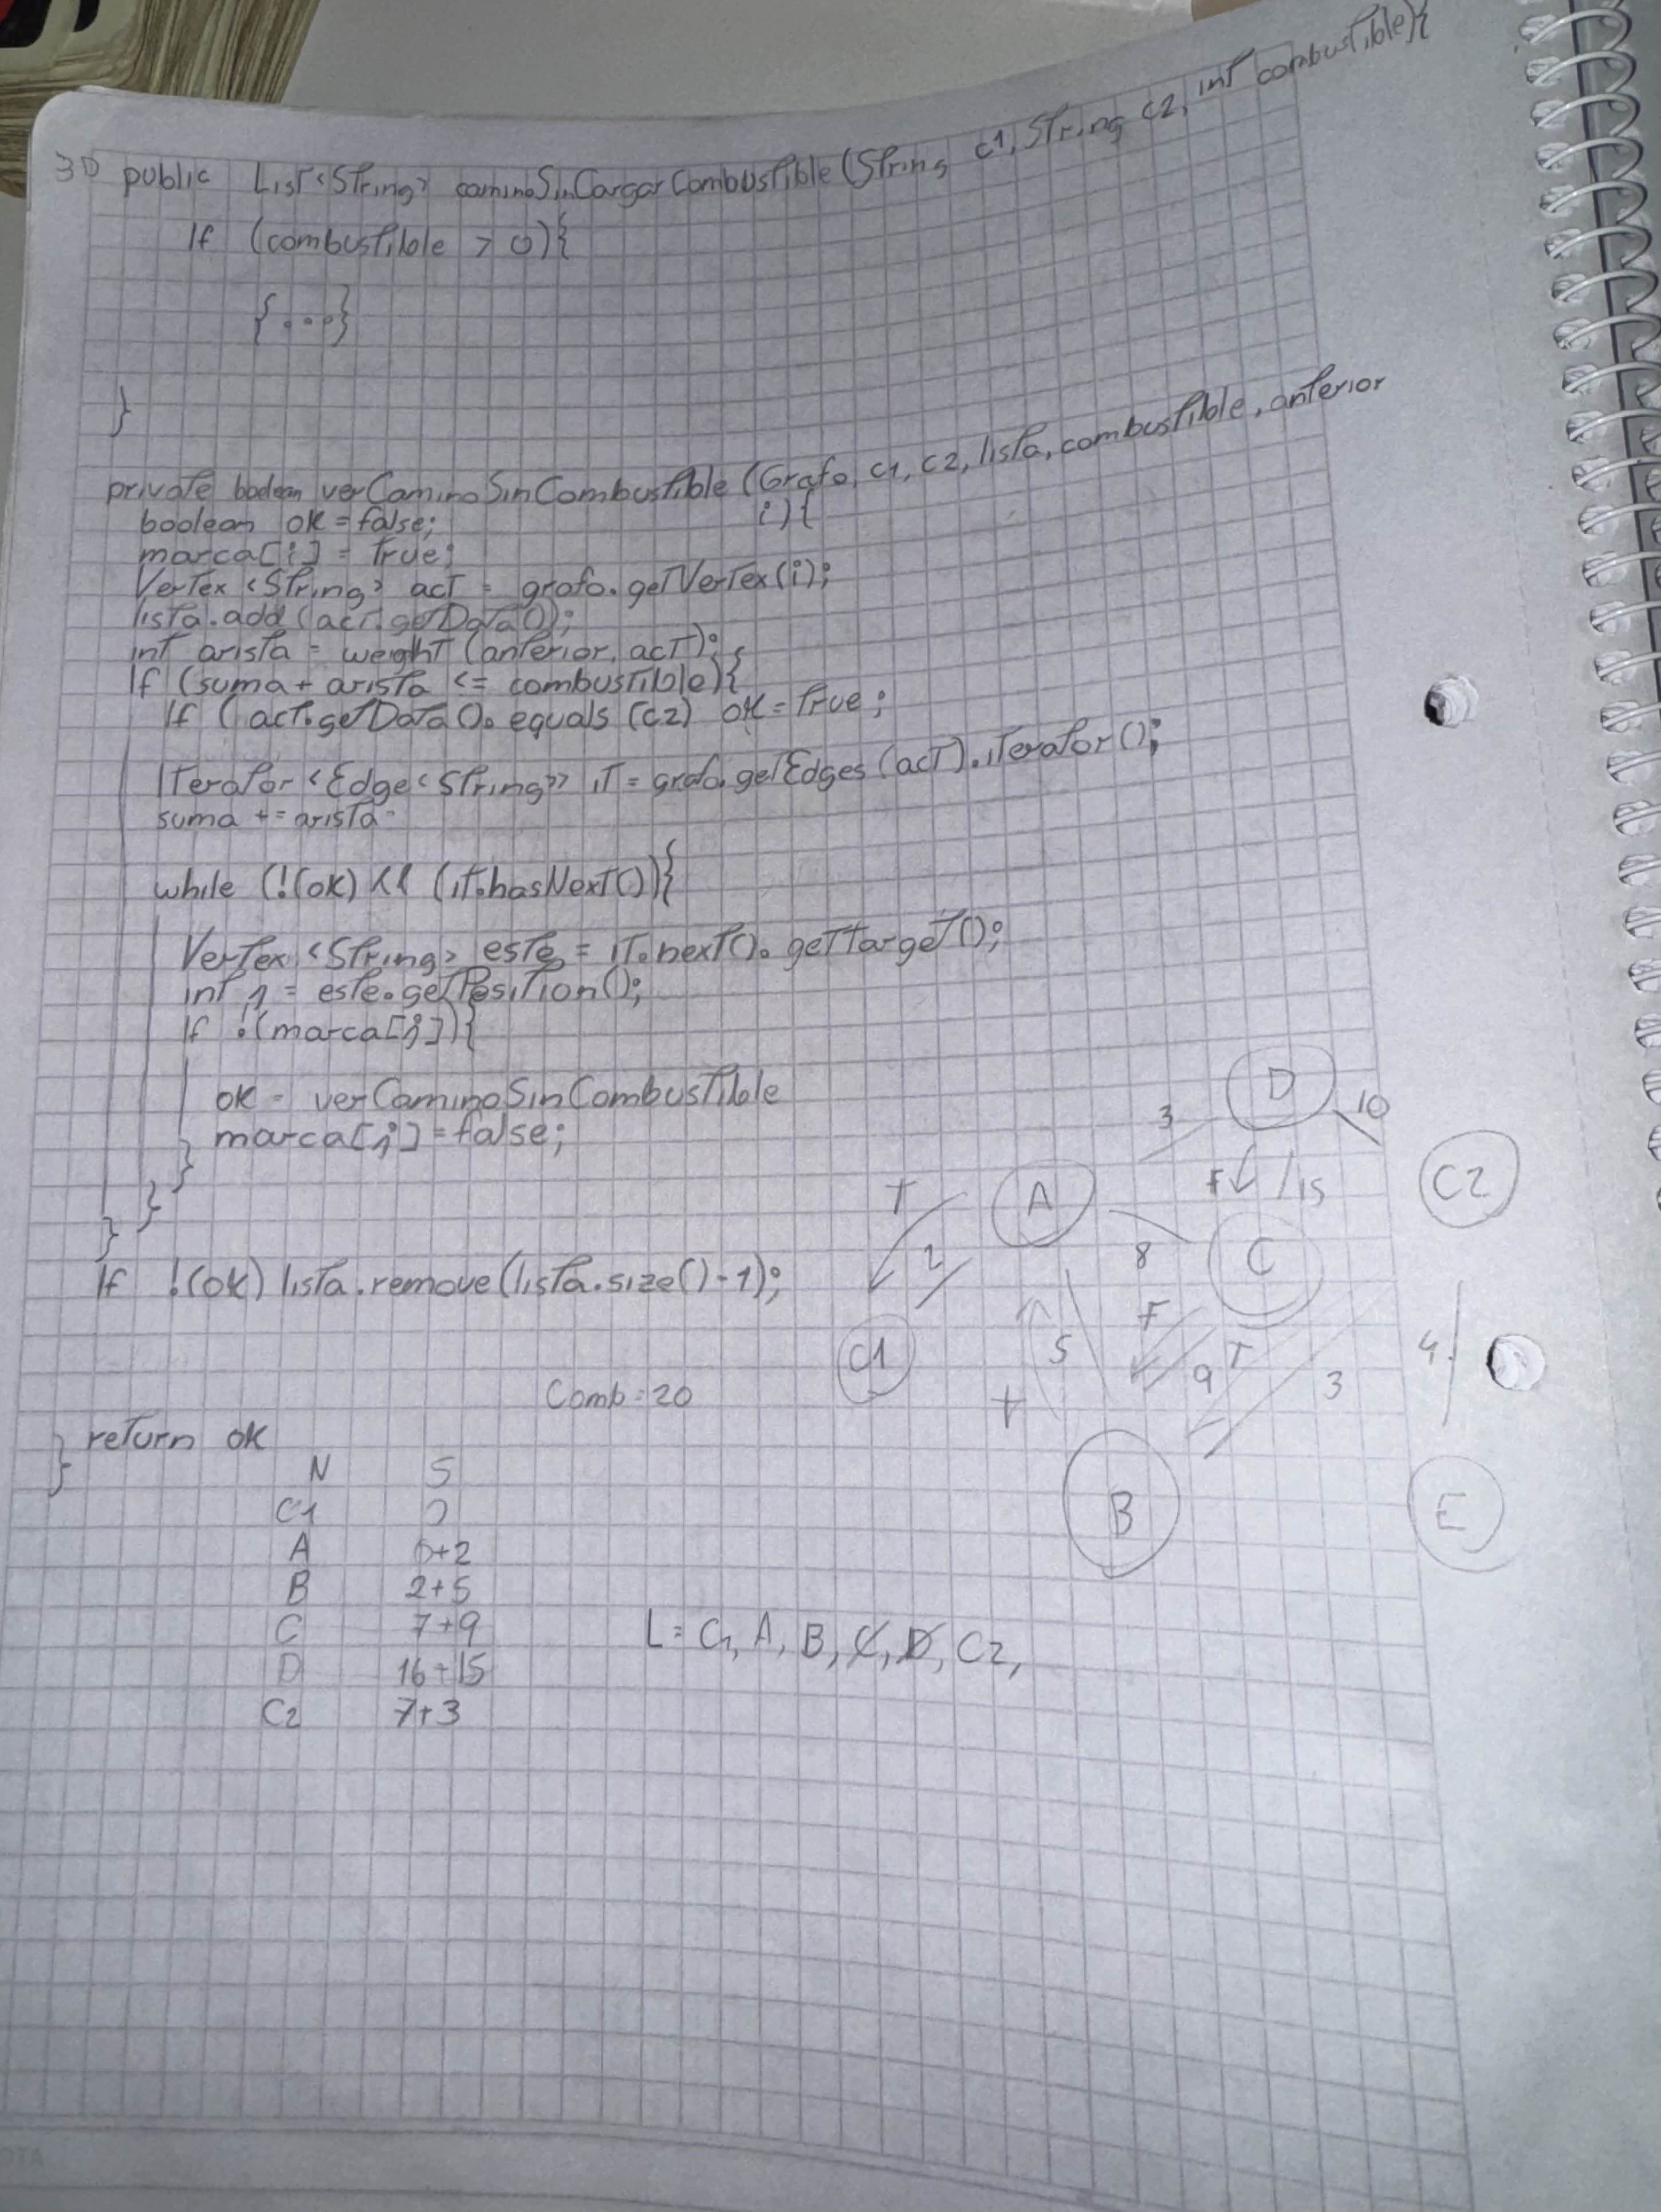 3D public List<String> caminoSinCargarCombustible (String c1, String c2, int combustible){
If (combustible > 0){
{...}
}
private boolean verCaminoSinCombustible (Grafo, c1, c2, lista, combustible, anterior
i){
boolean ok = false;
marca[i] = true;
Vertex <String> act = grafo.getVertex(i);
lista.add(act.getData());
int arista = weight (anterior, act);
If (suma + arista <= combustible){
If (act.getData().equals (c2) ok = true;
Iterator <Edge<String>> it = grafo.getEdges (act).iterator();
suma += arista
while (!(ok) && (it.hasNext()){
Vertex <String> este = it.next().getTarget();
int j = este.getPosition();
If !(marca[j]){
ok = verCaminoSinCombustible
marca[j] = false;
}
}
}
If !(ok) lista.remove(lista.size()-1);
return ok
}
Comb = 20
N S
C1 0
A 0+2
B 2+5
C 7+9
D 16+15
C2 7+3
L = C1, A, B, C, D, C2,
D
3
10
T
A
F
15
C2
2
8
C
F
C1
5
9
T
3
4
B
E